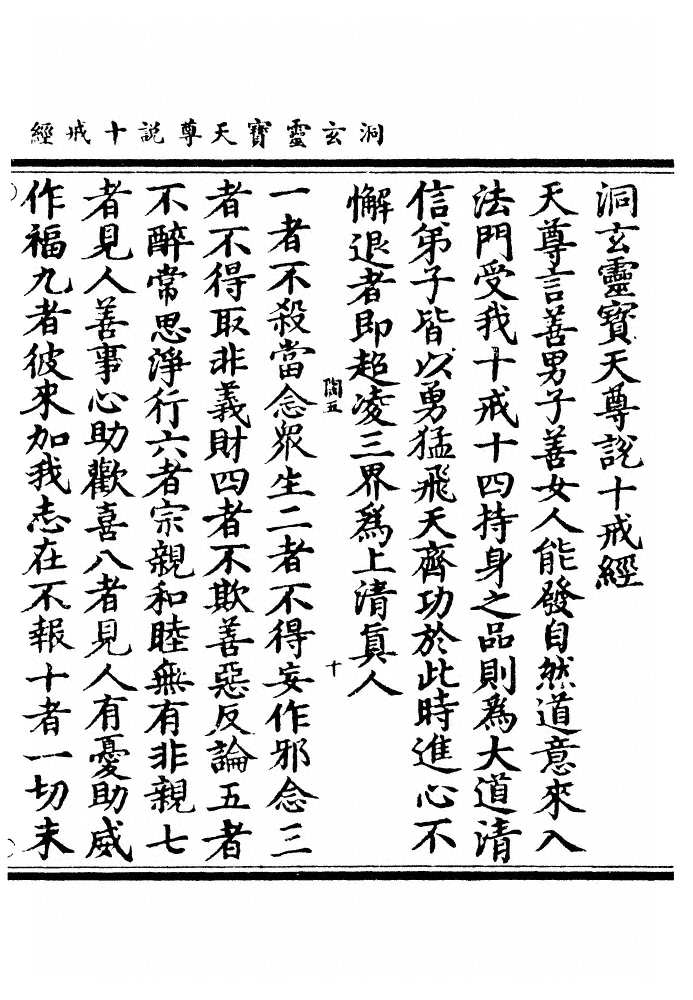 洞玄靈寶天尊說十戒經
洞玄靈寶天尊說十戒經
天尊言善男子善女人能發自然道意來入
法門受我十戒十四持身之品則爲大道清
信弟子皆以勇猛飛天齊功於此時進心不
懈退者即超凌三界爲上清眞人
陶五
十
一者不殺當念衆生二者不得妄作邪念三
者不得取非義財四者不欺善惡反論五者
不醉常思淨行六者宗親和睦無有非親七
者見人善事心助歡喜八者見人有憂助威
作福九者彼來加我志在不報十者一切未